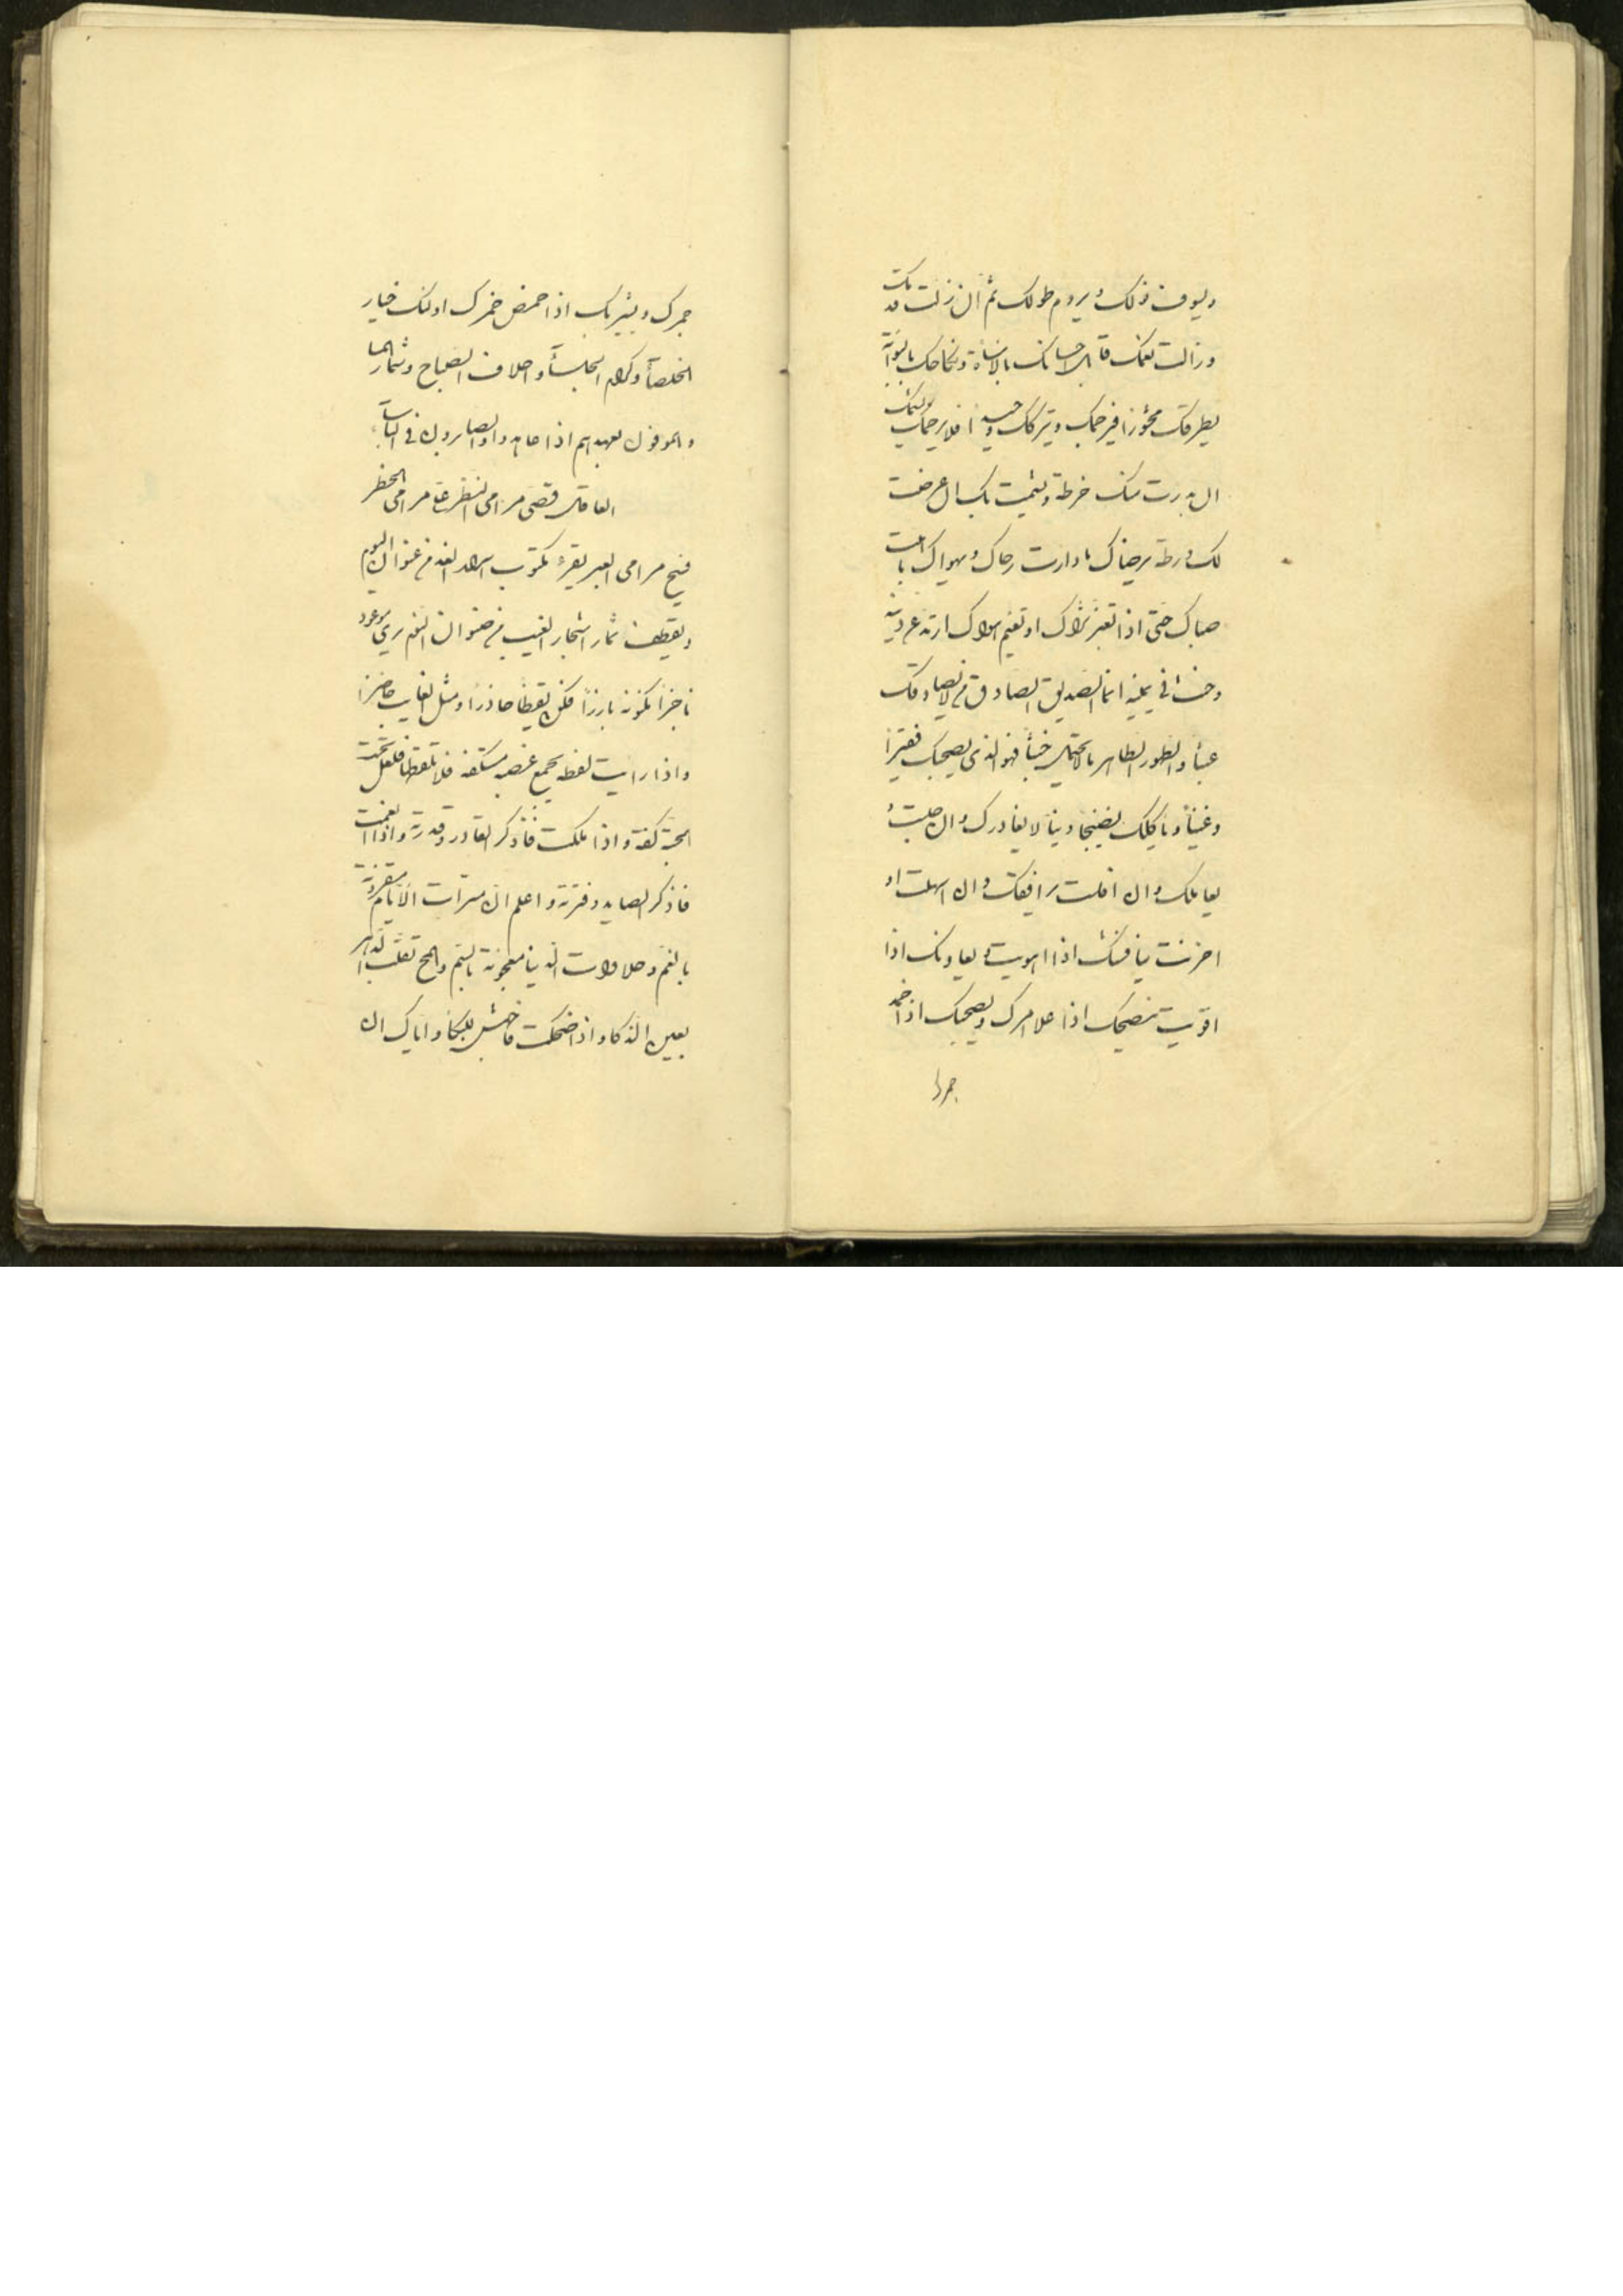 ويسوف نولك ويروم طولك ثم ان زلت بك قدمك
وزالت نعمك قابل احسانك بالاساءة ونكاحك بالسوأة
يطرقك مخمورا فيرحمك ويتركك وحيدا فلا يرحمك
ان بدرت منك خرطة يشمت بك ان عرضت
لك ورطة يرضاك ما دارت رحاك ويهواك ما هبت
صباك حتى اذا تغبر ثراك او تغيم هواك ارتد عن دينه
وحنث في يمينه انما الصديق الصادق من لا يصادقك
عبثا والطهور الطاهر ما لا يحتمل خبثا فهو الذي يصحبك فقيرا
وغنيا ويأكلك نضيجا ونيا لا يغادرك وان
يعاملك وان افلت يرافقك وان اسهلت او
احزنت ينافسك اذا هويت ويعاونك اذا
اقويت ينصحك اذا علا امرك ويصحبك اذا خمد
جمرك
جمرك ويشربك اذا حمض خمرك اولئك خيار
الخلصاء وكرام الجلساء واحلاف الصباح
والموفون بعهدهم اذا عاهدوا والصابرون في البأساء
العاقل قصى مرامى النظر عن مرامى الخطر
فسيح مرامى العبر يقرء مكتوب اسرار الغد من عنوان اليوم
ويقطف ثمار اشجار الغيب من صنوان النوم يرى موعوده
ناجزا ومكنونه بارزا فكن يقظا حاذرا ومثل الغايب حاضرا
واذا رايت لقطة بمجمع عصبة مستكفة فلا تلقطها فلعل تحت
الحبة كفة واذا ملكت فاذكر القادر وقدرته واذا انغمست
فاذكر الصايد وفترته واعلم ان مسرات الايام مقرونة
بالغم وحلاوات الدنيا معجونة بالسم والمح تقلب الدهر
بعين الذكاء واذا ضحكت فاجهش للبكاء واياك ان